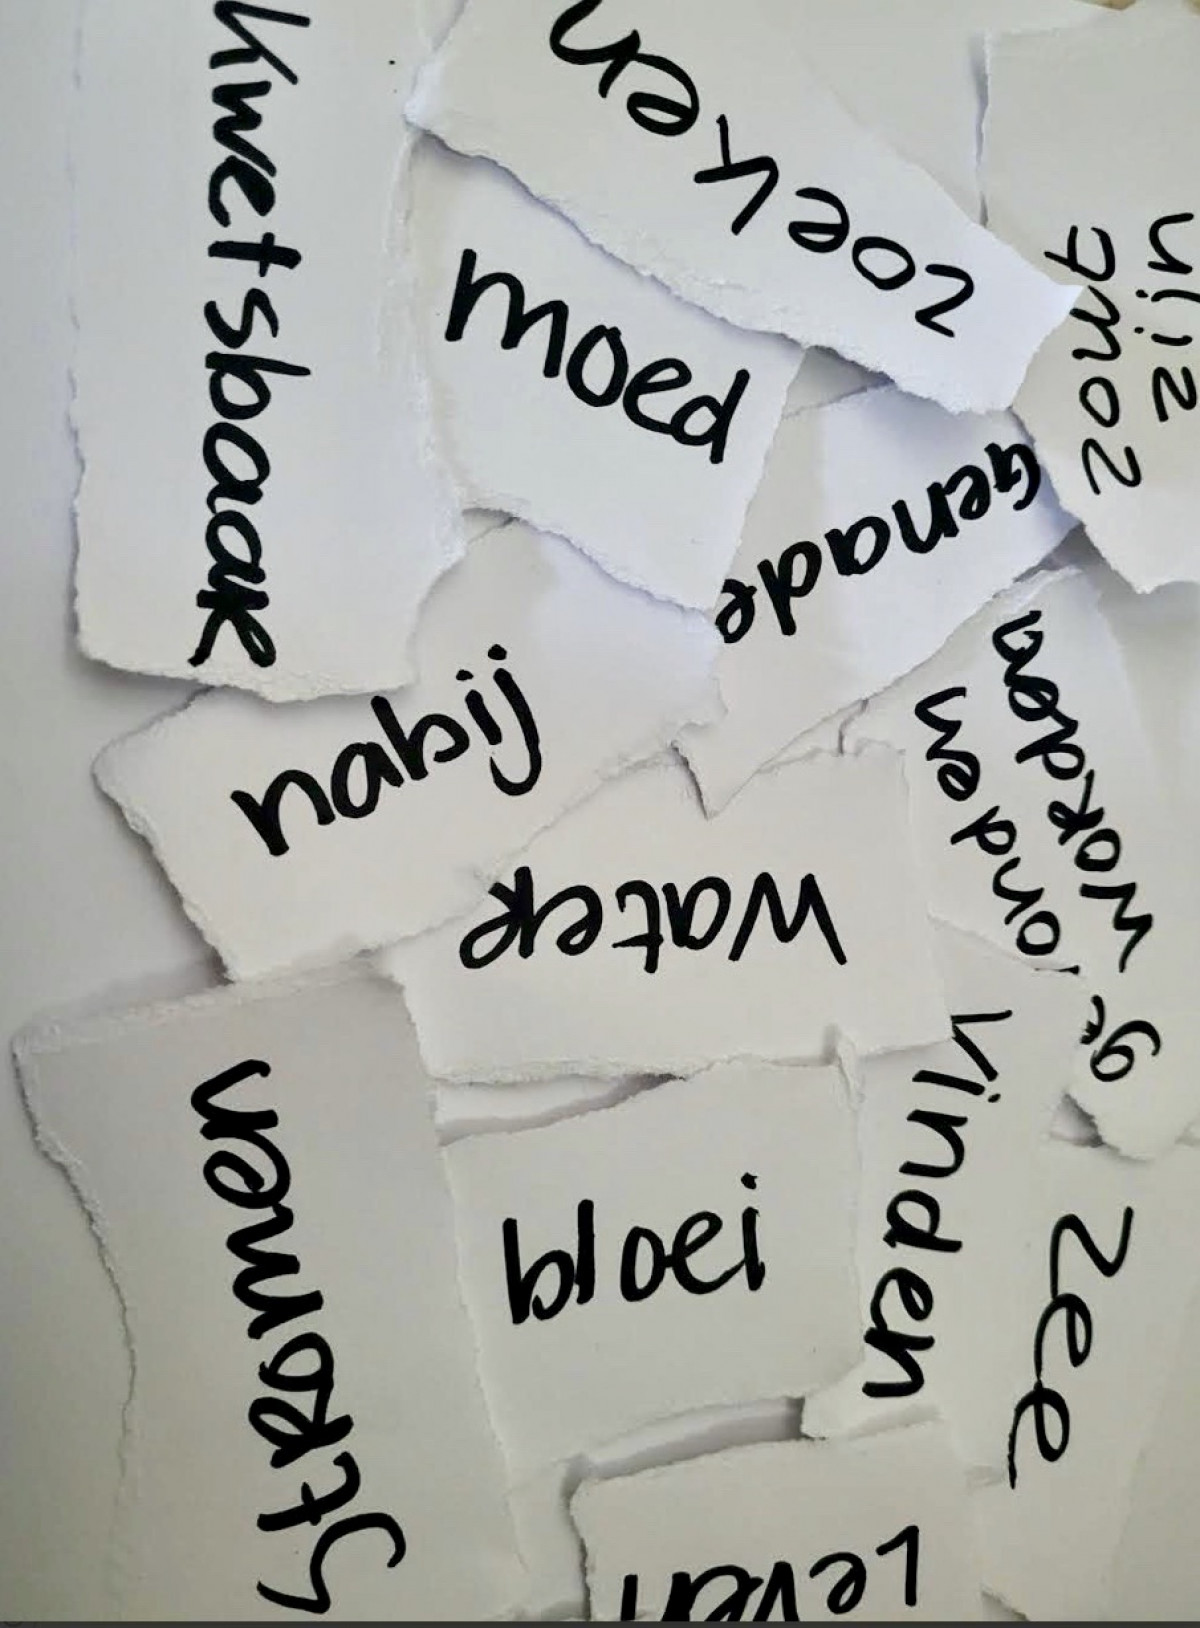 Kwetsbaar
zoeken
zout
zijn
moed
Genade
nabij
gevonden
worden
water
vinden
Stromen
bloei
zee
Leven